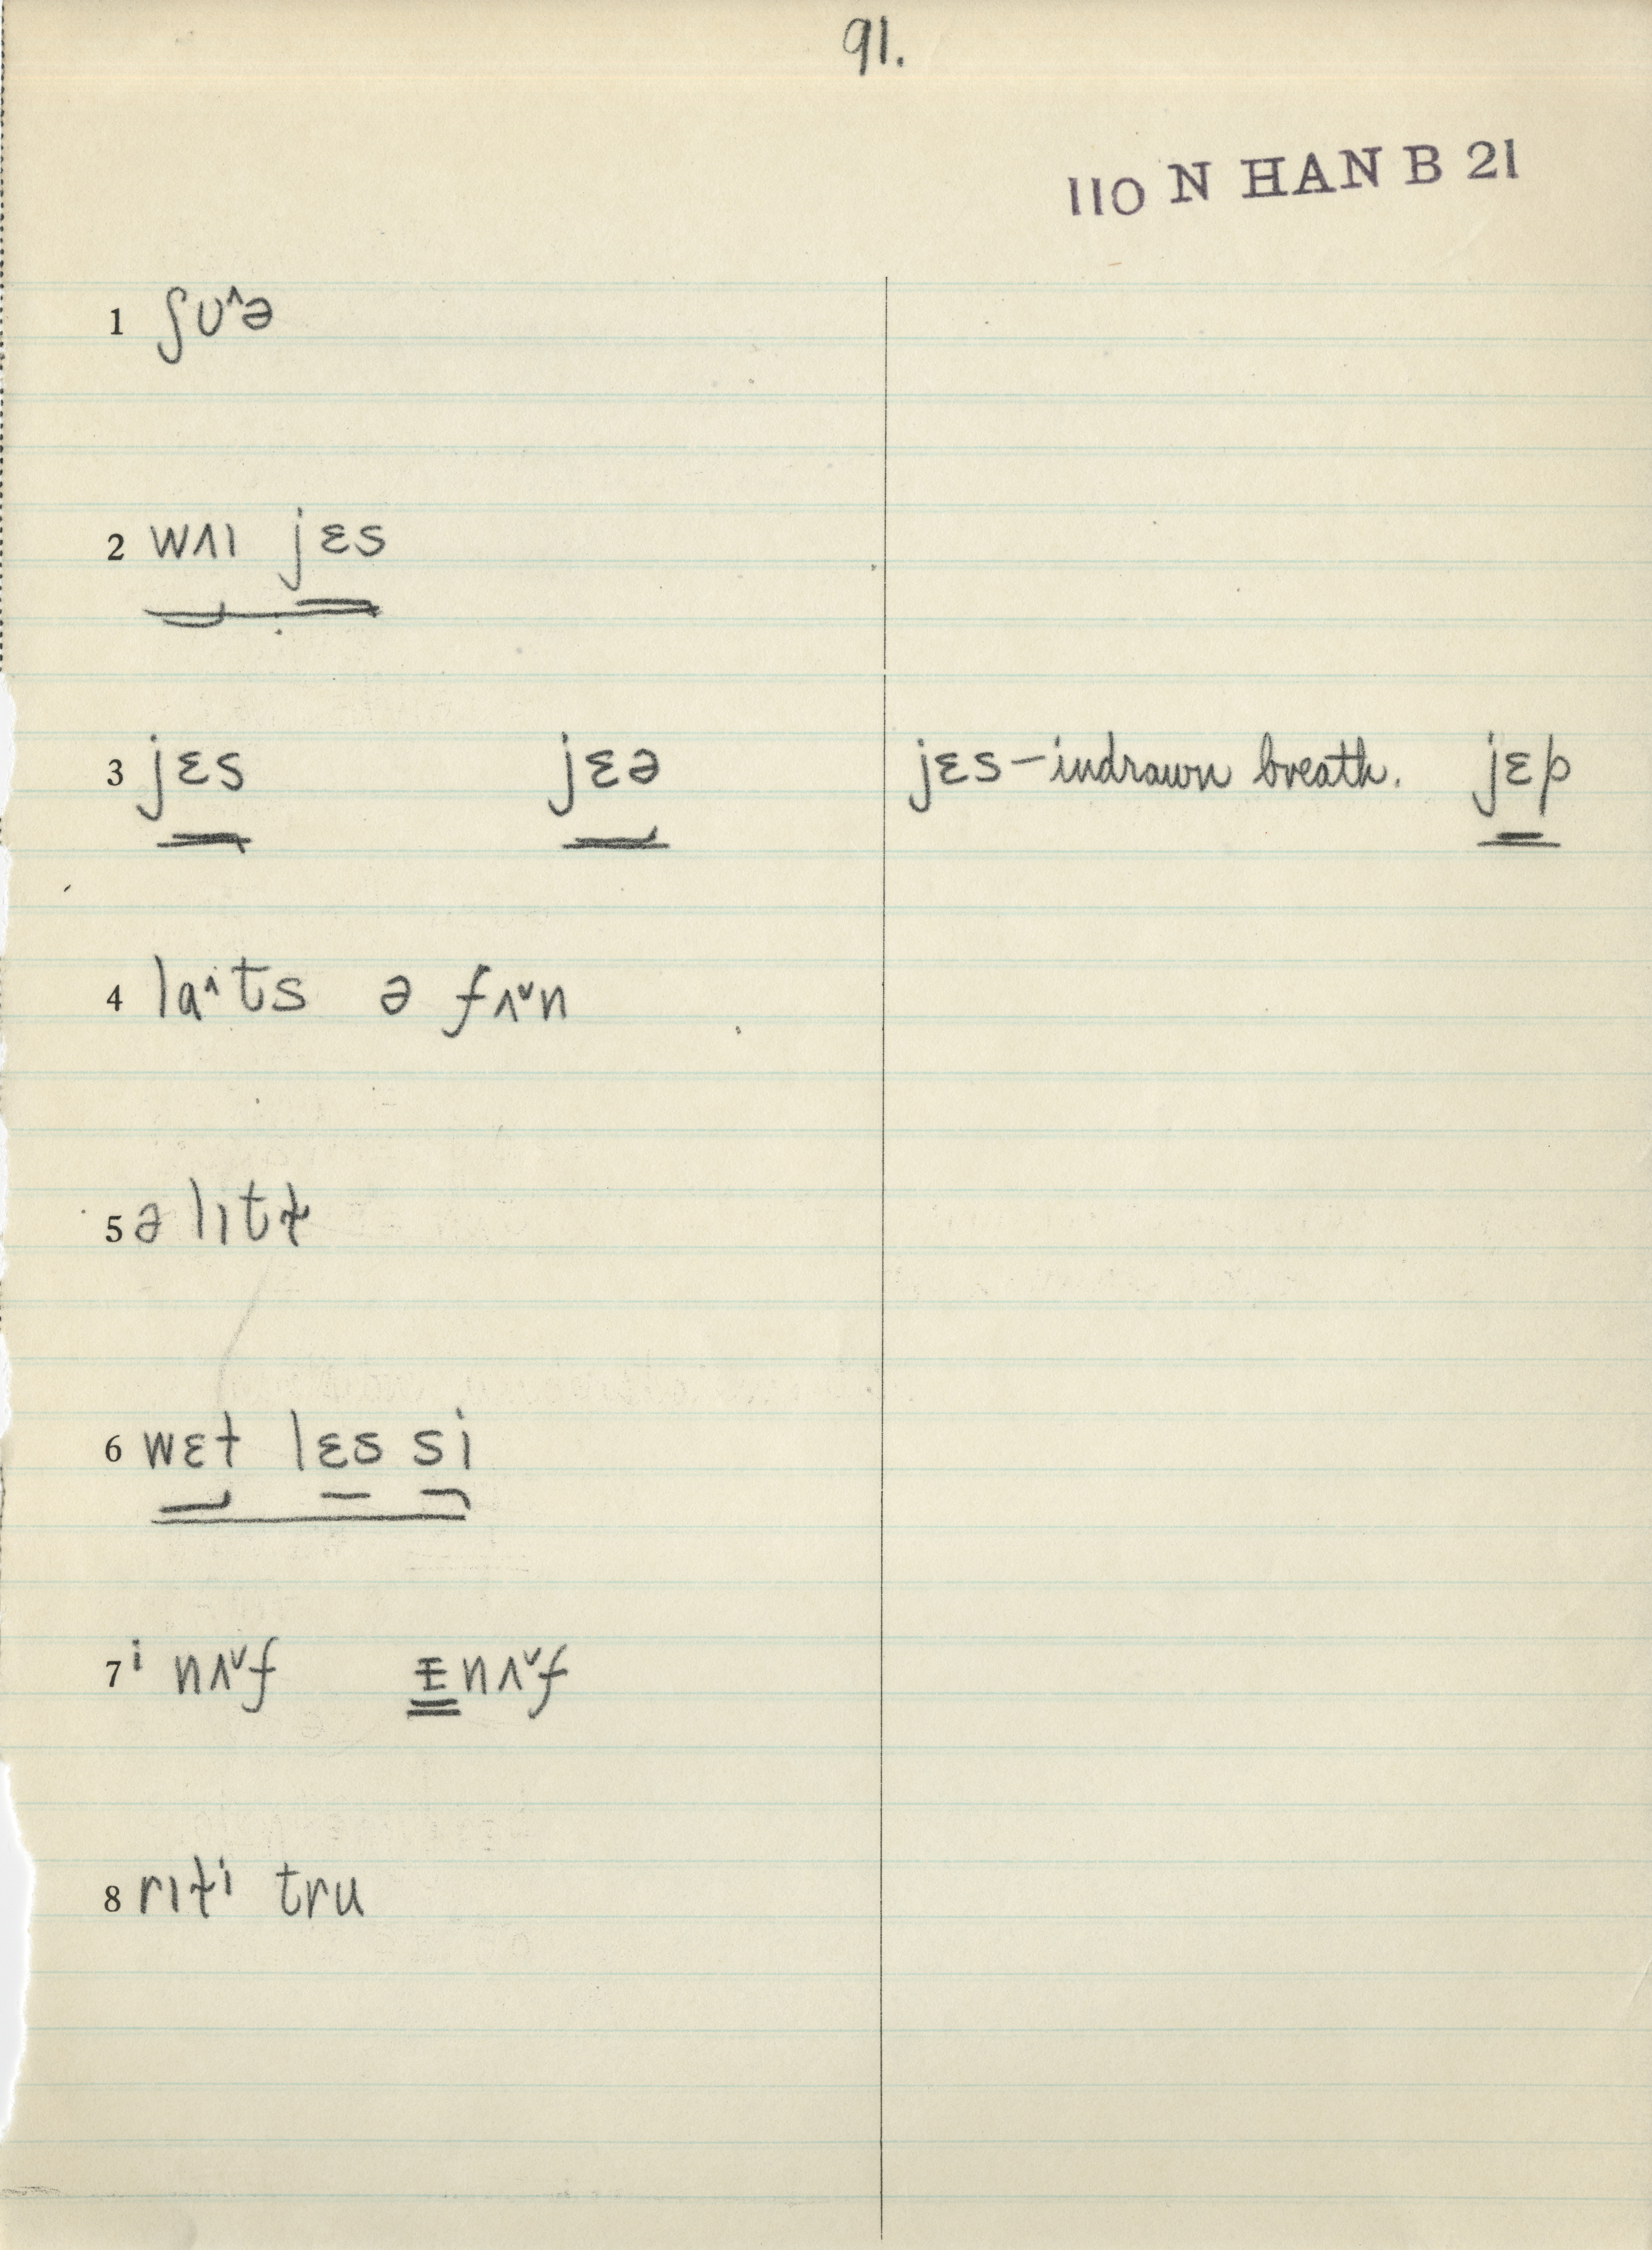 91.
110 N HAN B 21
1 ʃʊ^ə
2 wʌɪ jɛs
3 jɛs jɛə jɛs – indrawn breath. jɛp
4 la^ts ə fʌˇn
5 ə lɪtɬ
6 wɛɫ lɛs si
7 i nʌˇf ɪnʌˇf
8 rɪt̬i tru